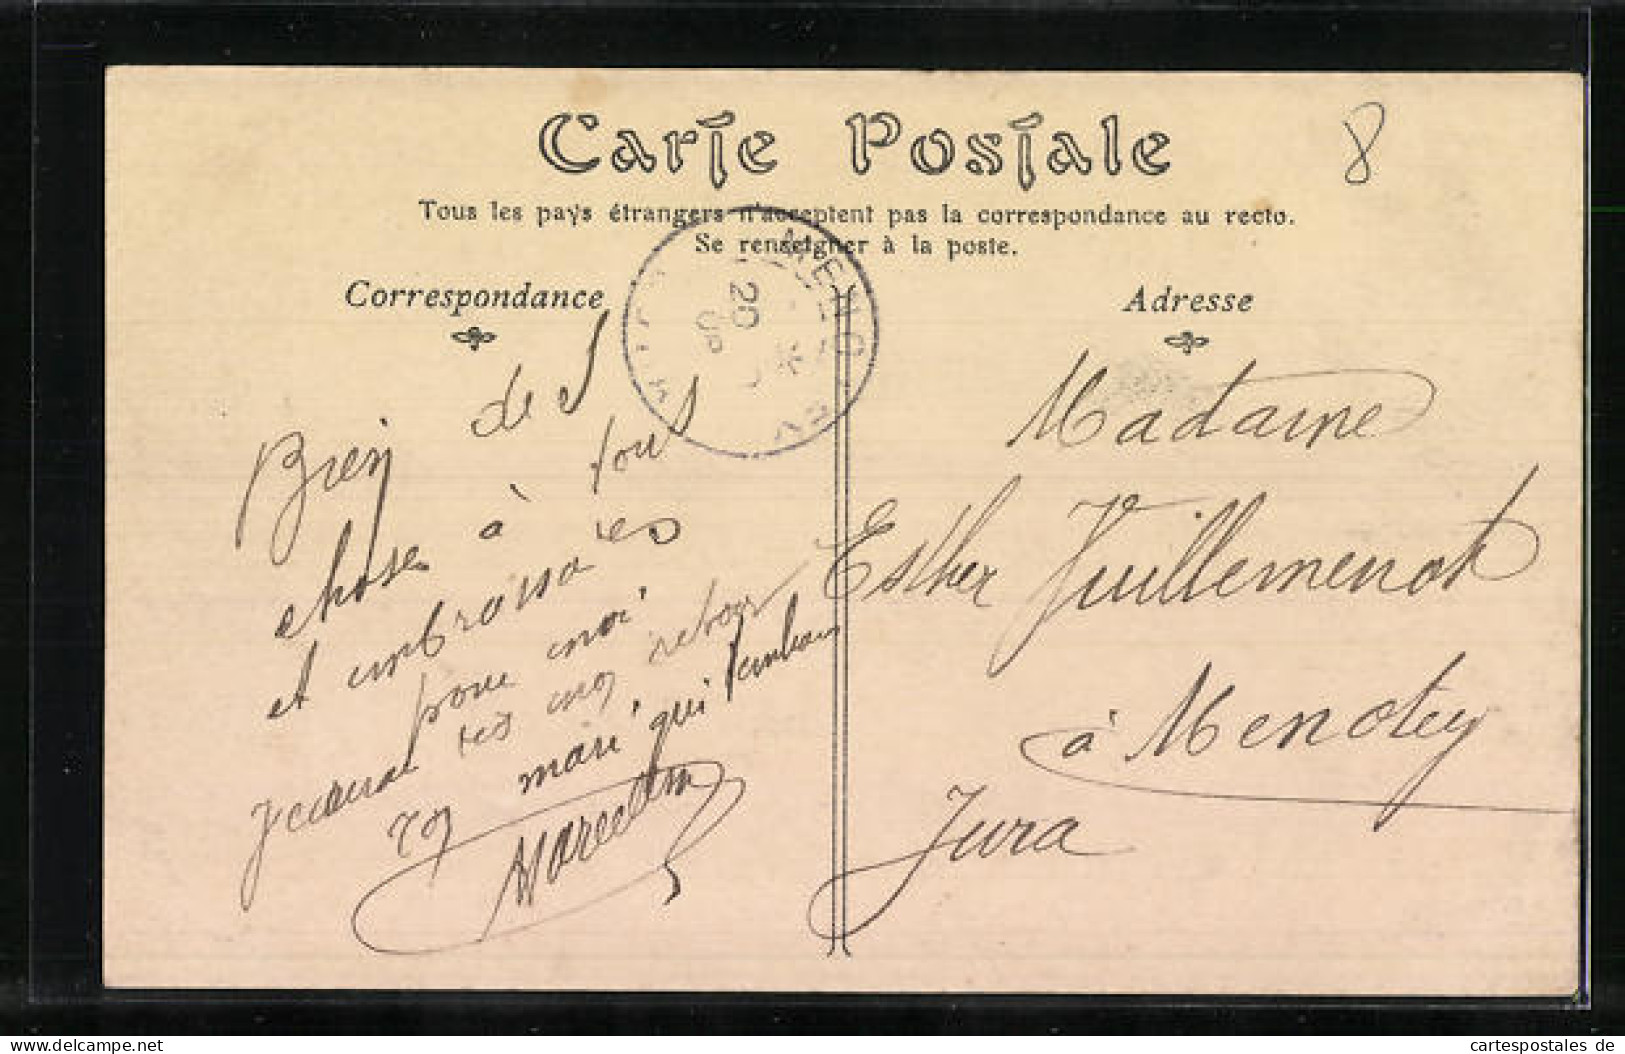 Carte Postale
8
Tous les pays étrangers n'acceptent pas la correspondance au recto.
Se renseigner à la poste.
Correspondance
Adresse
20
Bien des
chose à tous
et embrassa les
pour moi
retour
mari qui
Marcelin
Madame
Esther Vuillemenot
à Menotey
Jura
www.delcampe.net
cartespostales de